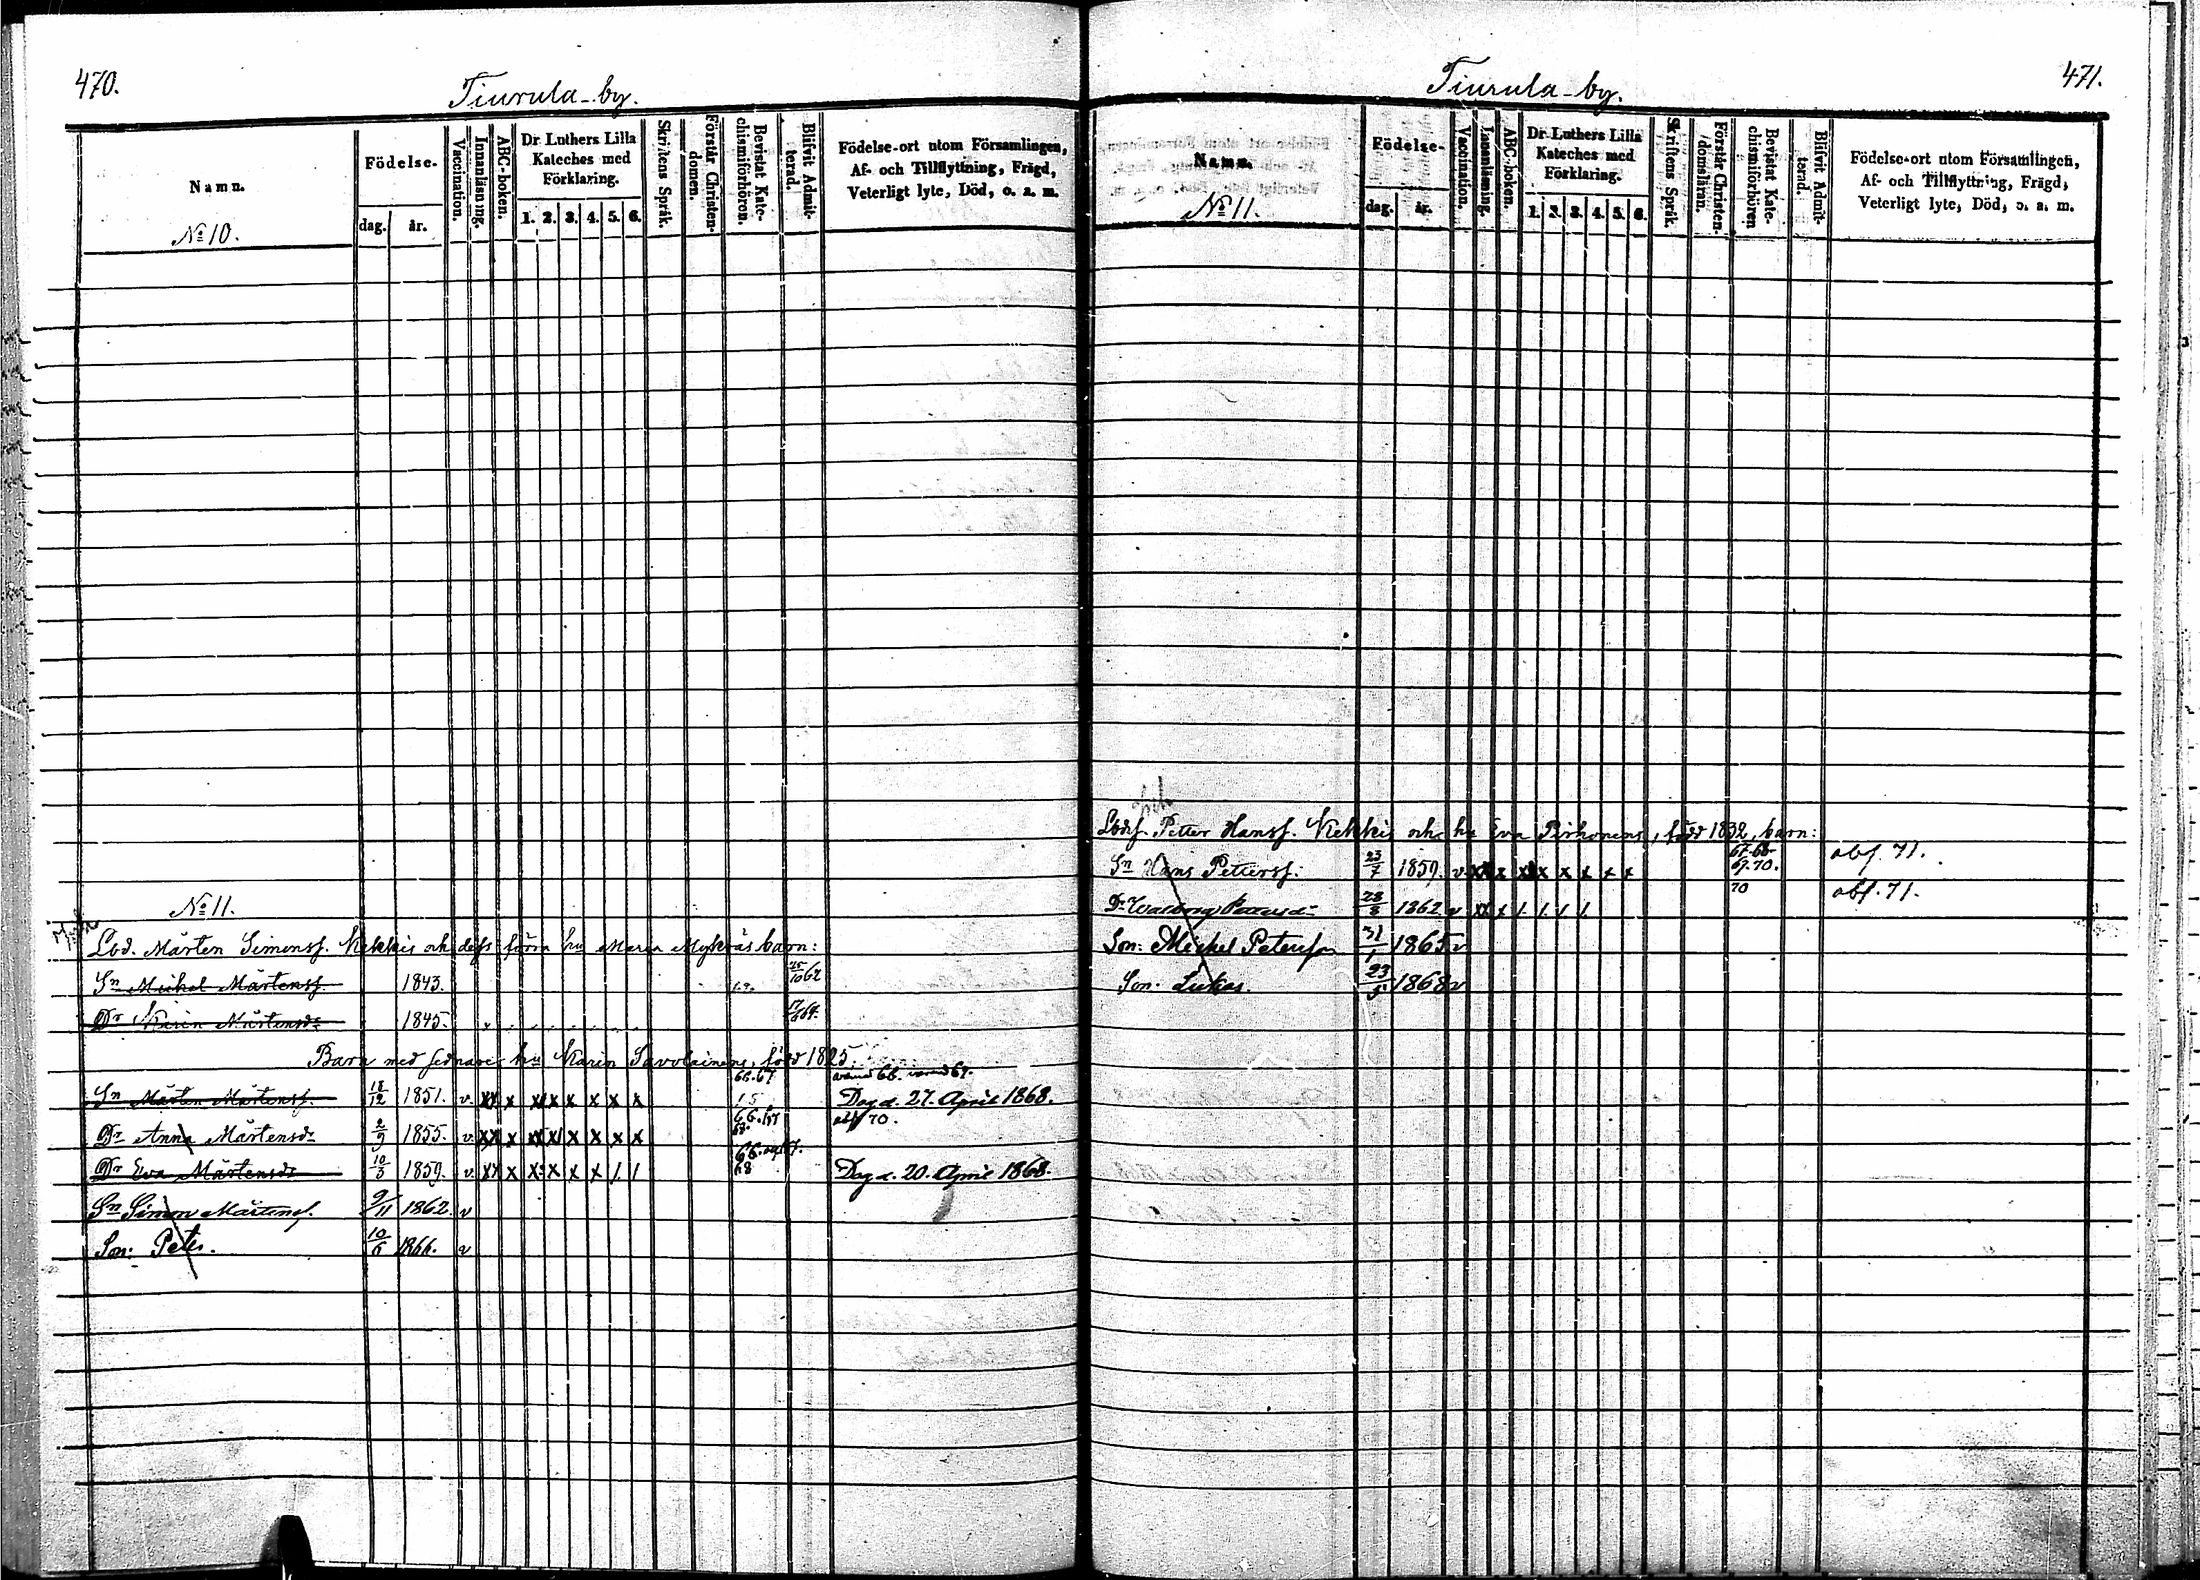 470.
Tiurula-by.
Namn.
Födelse.
Vaccination.
Innanläsning.
ABC-boken.
Dr Luthers Lilla
Kateches med
Förklaring.
Skriftens Språk.
Förstår Christen-
domen.
Bevistat Kate-
chismiförhören.
Blifvit Admit-
terad.
Födelse-ort utom Församlingen,
Af- och Tillflyttning, Frägd,
Veterligt lyte, Död, o. s. m.
No 10.
dag. år.
1. 2. 3. 4. 5. 6.
No 11.
Lbd. Mårten Simonss. Kekkis och dess förra hu Maria Mykräs barn:
Sn Michel Mårtenss. 1843. 62
Dr Karin Mårtensdr 1845.
Barn med sednare hu Karin Savolainens, född 1825.
66.67
Sn Mårten Mårtenss. 18/12 1851. v. xx x xx x x x x x Dog d. 27. April 1868.
Dr Anna Mårtensdr 2/9 1855. v. xx x xx x x x x x 66. 68. abs 70.
Dr Eva Mårtensdr 10/3 1859. v. xx x x x x x 1. 1 66. 68 Dog d. 20. April 1868.
Sn Simon Mårtenss. 9/11 1862. v
Son: Peter. 10/6 1866. v
471.
Tiurula-by.
Namn.
Födelse-
Vaccination.
Innanläsning.
ABC-boken.
Dr Luthers Lilla
Kateches med
Förklaring.
Skriftens Språk.
Förstår Christen-
domsläran.
Bevistat Kate-
chismiförhören
Blifvit Admit-
terad.
Födelse-ort utom Församlingen,
Af- och Tillflyttning, Frägd,
Veterligt lyte, Död, o. s. m.
No 11.
dag. år.
1. 2. 3. 4. 5. 6.
Lbdss. Petter Hanss. Kekkis och hu Eva Pirhonens, född 1832, barn:
Sn Hans Petterss. 23/7 1859. v. xx x xx x x x x 67.68 69.70. abs. 71.
Dr Walborg Pettersdr 28/8 1862 v xx x 1. 1. 1 1. 70 abs. 71.
Son: Michel Petersson 31/1 1865 v
Son: Lukas. 23/5 1868 v